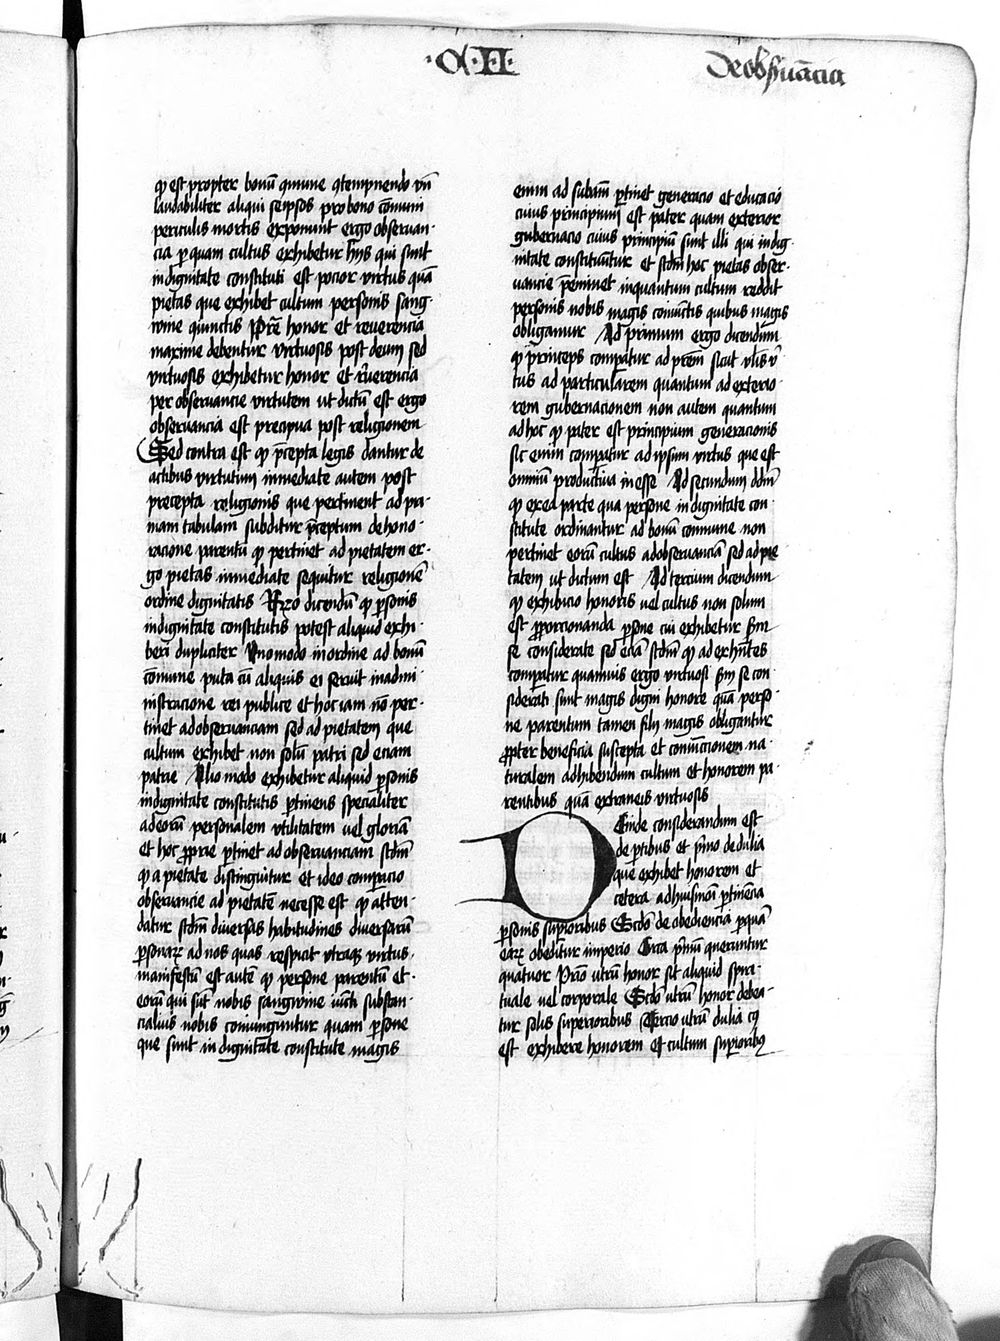 ·C·II·
De obsuācia
qp est propter bonū qmune qtempnendo vn̄
laudabiliter aliqui seipsos pro bono cōmuni
periculis mortis exponunt ergo obseruan-
cia p quam cultus exhibetur hijs qui sunt
in dignitate constituti est pocior virtus quā
pietas que exhibet cultum personis sang-
wine qiunctis Pretē honor et reuerencia
maxime debentur virtuosis post deum sed
virtuosis exhibetur honor et reuerencia
per obseruancie virtutem ut dictū est ergo
obseruancia est precipua post religionem
Sed contra est qp pcepta legis dantur de
actibus virtutum inmediate autem post
precepta religionis que pertinent ad pri-
mam tabulam subditur pceptum de hono-
racione parentū qp pertinet ad pietatem er-
go pietas inmediate sequitur religionē
ordine dignitatis Rño dicendū qp psonis
in dignitate constitutis potest aliquid exhi-
beri dupliciter Vno modo in ordine ad bonū
cōmune puta cū aliquis ei seruit in admi-
nistracione rei publice et hoc iam nō per-
tinet ad obseruanciam sed ad pietatem que
cultum exhibet non solū patri sed eciam
patrie Alio modo exhibetur aliquid psonis
in dignitate constitutis ptinens specialiter
ad eorū personalem vtilitatem vel gloriā
et hoc pprie ptinet ad obseruanciam scdm
qp a pietate distinguitur et ideo compacio
obseruancie ad pietatē necesse est qp atten-
datur scdm diuersas habitudines diuersarū
psonarum ad nos quas respicit vtraq virtus
manifestū est autē qp persone parentū et
eorū qui sūt nobis sangwine iūcti substan-
cialius nobis coniunguntur quam psone
que sunt in dignitate constitute magis
enim ad subam ptinet generacio et educacio
cuius principium est pater quam exterior
gubernacio cuius principiū sunt illi qui in dig-
nitate constituūtur et scdm hoc pietas obser-
uancie peminet inquantum cultum reddit
personis nobis magis coniūctis quibus magis
obligamur Ad primum ergo dicendum
qp princeps compatur ad prem sicut vlis v-
tus ad particularem quantum ad exterio-
rem gubernacionem non autem quantum
ad hoc qp pater est principium generacionis
sic enim compatur ad ipsum virtus que est
omniū productiua in esse Ad secundum ddm
qp ex ea parte qua persone in dignitate con-
stitute ordinantur ad bonū commune non
pertinet eorū cultus ad obseruanciā sed ad pie
tatem ut dictum est Ad tercium dicendum
qp exhibicio honoris uel cultus non solum
est pporcionanda psone cui exhibetur scdm
se considerate sed eciā scdm qp ad exhibentes
compatur quamuis ergo virtuosi scdm se con-
siderati sunt magis digni honore quā perso-
ne parentum tamen filij magis obligantur
ppter beneficia suscepta et coniunccionem na-
turalem adhibendum cultum et honorem pa-
rentibus quā extraneis virtuosis
Deinde considerandum est
de ptibus et pmo de dulia
que exhibet honorem et
cetera ad huiusmōi ptinēcia
psonis supioribus Scdo de obediencia p quā
earum obeditur imperio Circa pmū queruntur
quatuor Prīo utrū honor sit aliquid spiri-
tuale uel corporale Scdo utrum honor debea-
tur solis superioribus Tercio utrū dulia cuius
est exhibere honorem et cultum supioribus